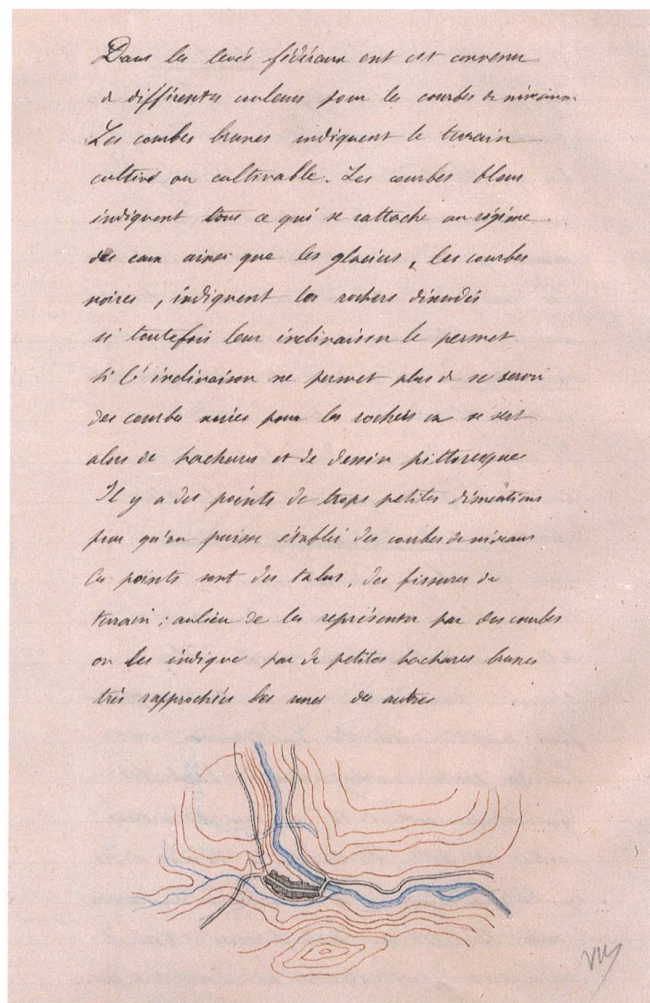 Dans les levés fédéraux ont est convenu
d différentes couleurs pour les courbes de niveaux
Les courbes brunes indiquent le terrain
cultivé ou cultivable. Les courbes bleus
indiquent tous ce qui se rattache au régime
des eaux ainsi que les glaciers, les courbes
noires, indiquent les rochers dénudés
si toutefois leur inclinaison le permet.
Si l'inclinaison ne permet plus d se servir
des courbes noires pour les rochers on se sert
alors de hachures et de dessin pittoresque
Il y a des points de trops petites dimentions
pour qu'on puisse établi des courbes de niveaux
Ces points sont des talus, des fissures de
terrain; aulieu de les représenter par des courbes
on les indique par de petites hachures brunes
très rapprochées les unes des autres